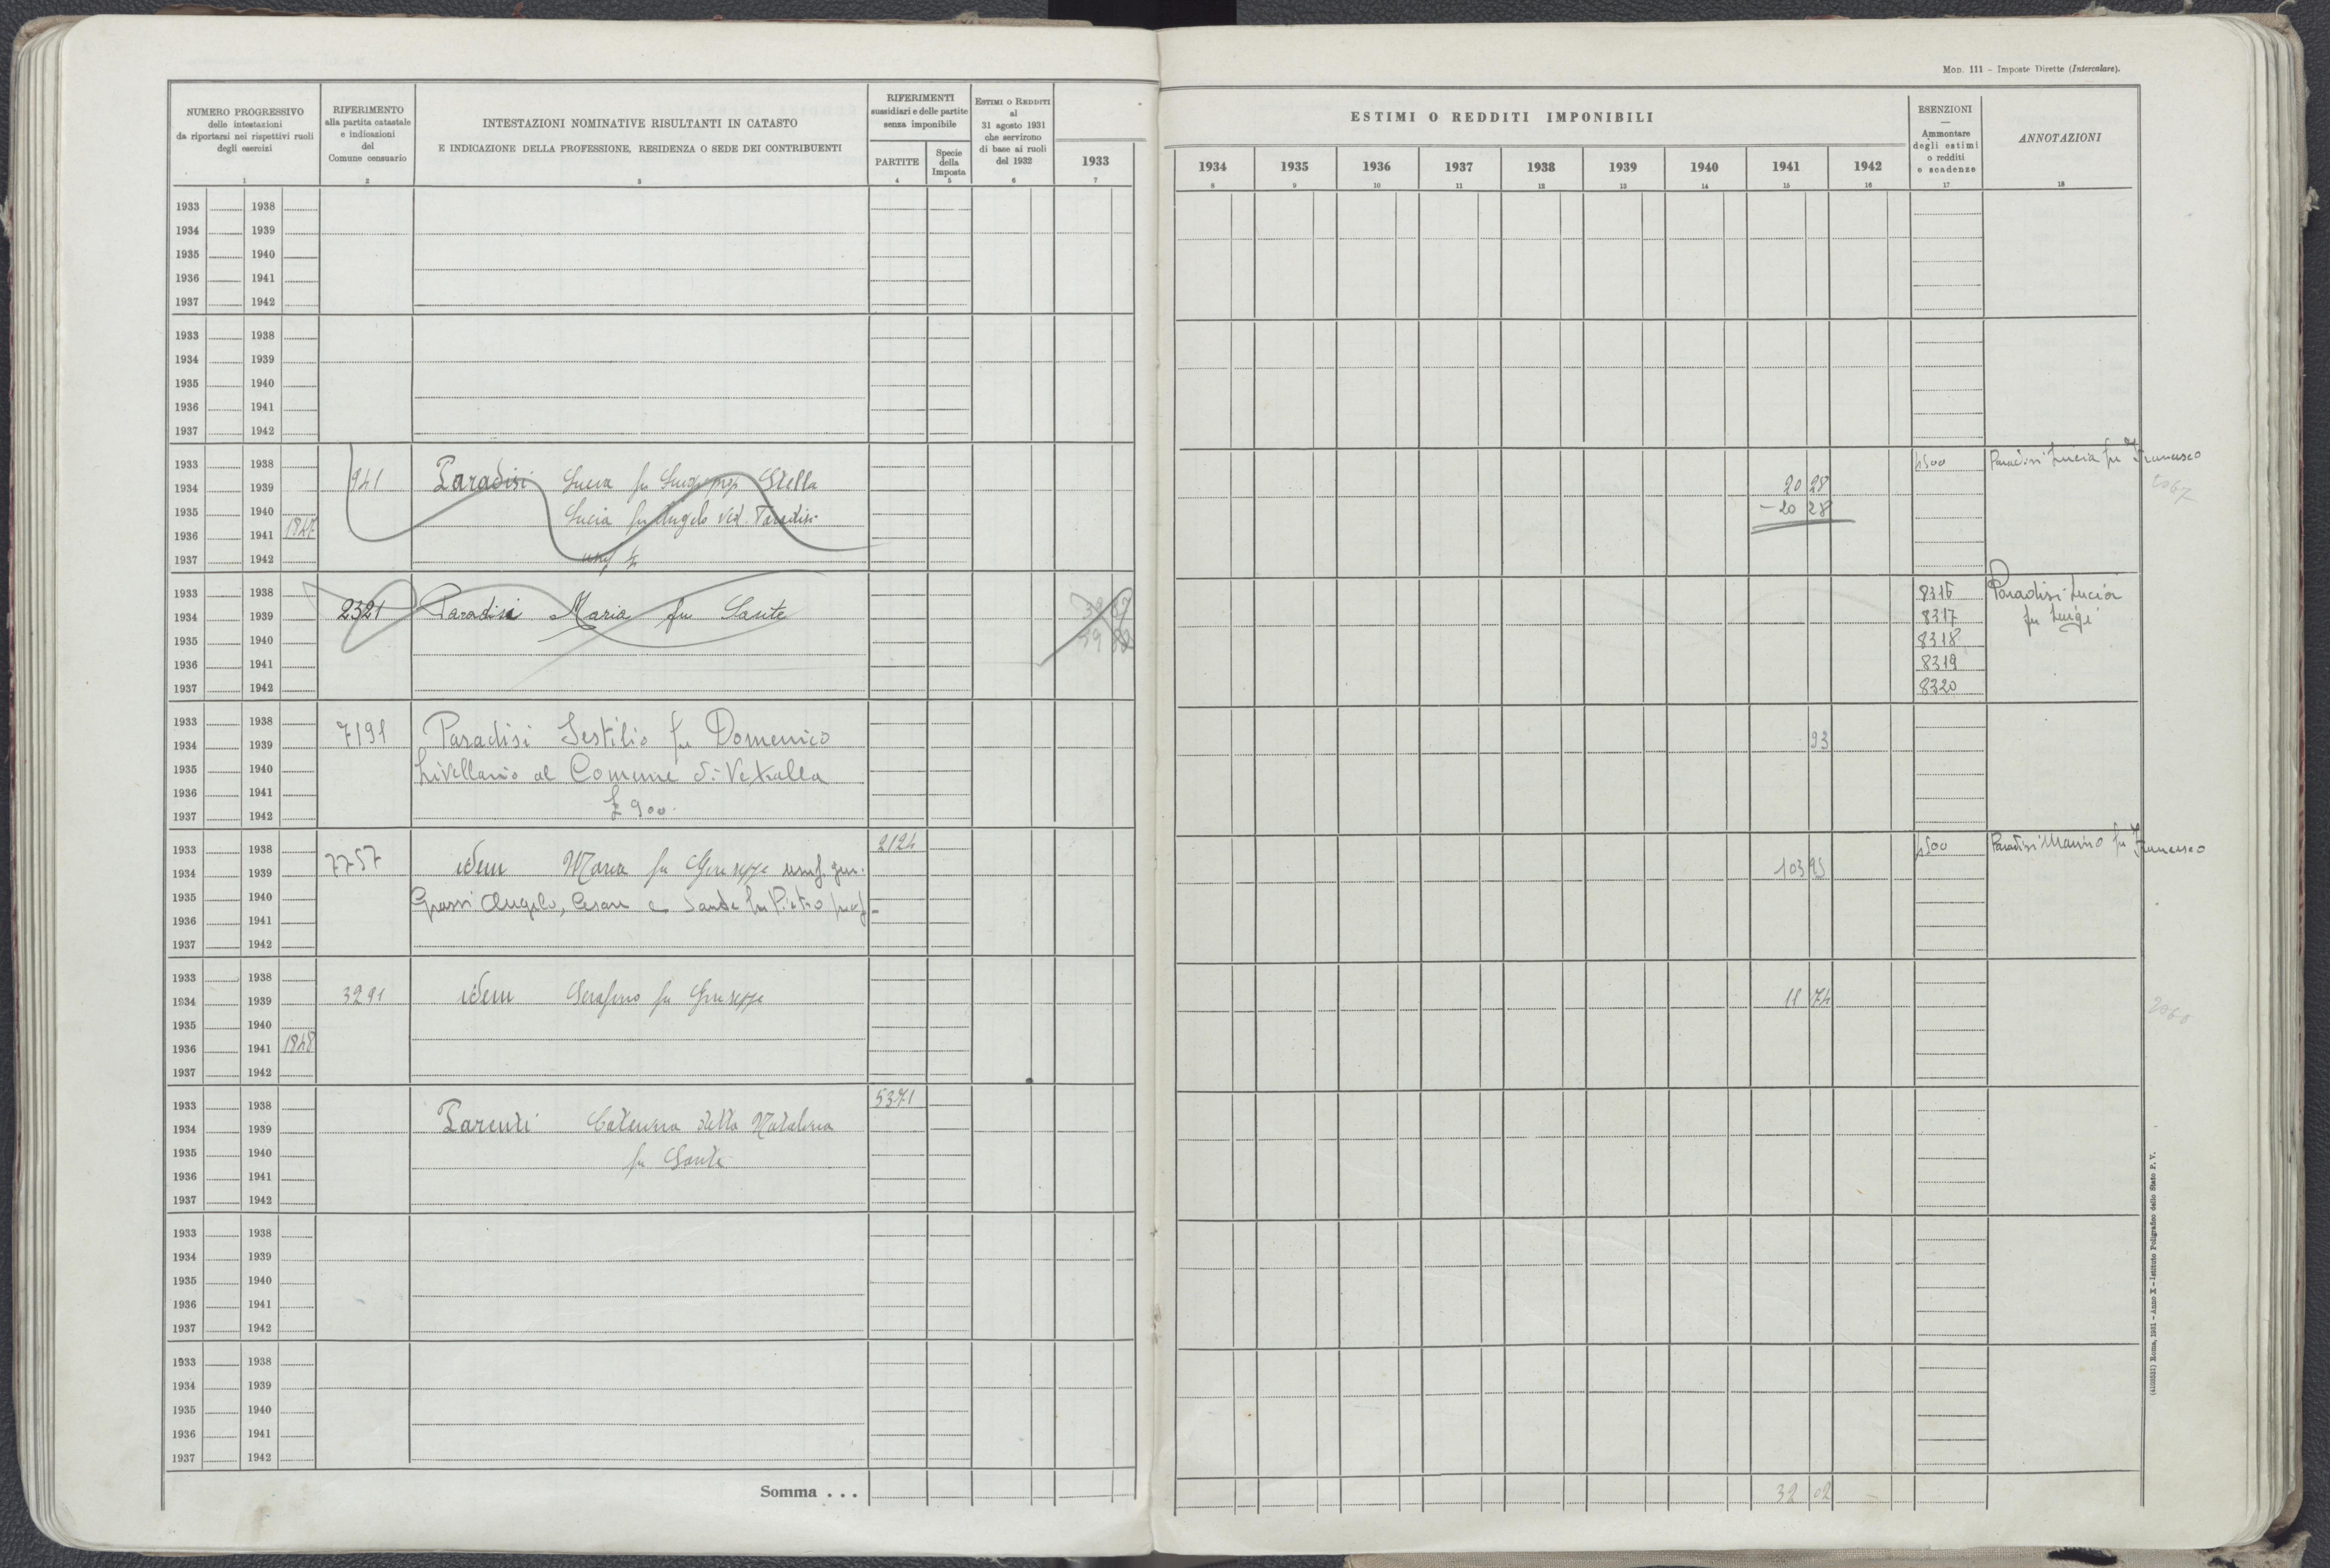 Mod. 111 - Imposte Dirette (Intercalare).
NUMERO PROGRESSIVO
delle intestazioni
da riportarsi nei rispettivi ruoli
degli esercizi
1
RIFERIMENTO
alla partita catastale
e indicazioni
del
Comune censuario
2
INTESTAZIONI NOMINATIVE RISULTANTI IN CATASTO
E INDICAZIONE DELLA PROFESSIONE, RESIDENZA O SEDE DEI CONTRIBUENTI
3
RIFERIMENTI
sussidiari e delle partite
senza imponibile
PARTITE
4
Specie
della
Imposta
5
ESTIMI O REDDITI
al
31 agosto 1931
che servirono
di base ai ruoli
del 1932
6
1933
7
ESTIMI O REDDITI IMPONIBILI
1934 1935 1936 1937 1938 1939 1940 1941 1942
8 9 10 11 12 13 14 15 16
ESENZIONI
—
Ammontare
degli estimi
o redditi
e scadenze
17
ANNOTAZIONI
18
1933 1938
1934 1939
1935 1940
1936 1941
1937 1942
1933 1938
1934 1939
1935 1940
1936 1941
1937 1942
1933 1938 4500 Paradisi Lucia fu Francesco
1934 1939 941 Paradisi Lucia fu Luigi prop Stella 20 28 2067
1935 1940 Lucia fu Angelo ved. Paradisi - 20 28
1936 1941 1847
1937 1942 usuf
1933 1938 8316 Paradisi Lucia
1934 1939 2321 Paradisi Maria fu Sante 8317 fu Luigi
1935 1940 8318
1936 1941 8319
1937 1942 8320
1933 1938
1934 1939 7191 Paradisi Sestilio fu Domenico 93
1935 1940 Livellario al Comune di Vetralla
1936 1941
1937 1942 £ 900
1933 1938 2124 4500 Paradisi Marino fu Francesco
1934 1939 7757 idem Maria fu Giuseppe usuf. gen. 103 95
1935 1940 Grassi Angelo, Cesare e Sante fu Pietro
1936 1941
1937 1942
1933 1938
1934 1939 3291 idem Serafino fu Giuseppe 11 74
1935 1940
1936 1941 1848
1937 1942
1933 1938 5371
1934 1939 Parenti Caterina detta Natalina
1935 1940 fu Sante
1936 1941
1937 1942
1933 1938
1934 1939
1935 1940
1936 1941
1937 1942
1933 1938
1934 1939
1935 1940
1936 1941
1937 1942
Somma . . . 32 02
(4103531) Roma, 1931 - Anno X - Istituto Poligrafico dello Stato P. V.